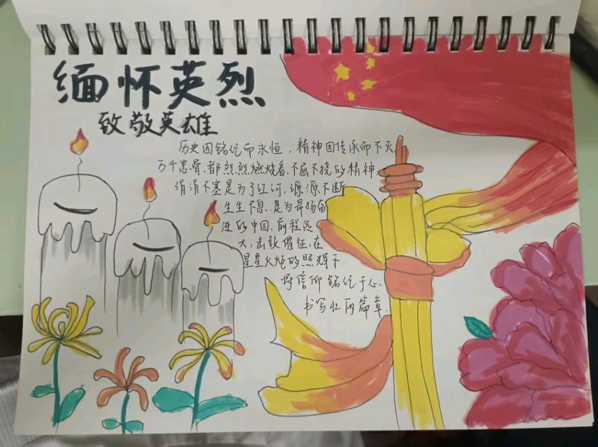 缅怀英烈
致敬英雄
历史因铭记而永恒,精神因传承而不灭
万千忠骨,都烈烈燃烧着,不屈不挠的精神
涓涓不塞是为了江河,源源不断
生生不息,是为昂扬奋
进的中国,前程远
大,击鼓催征,在
星星火炬的照耀下
将信仰铭记于心
书写壮丽篇章.